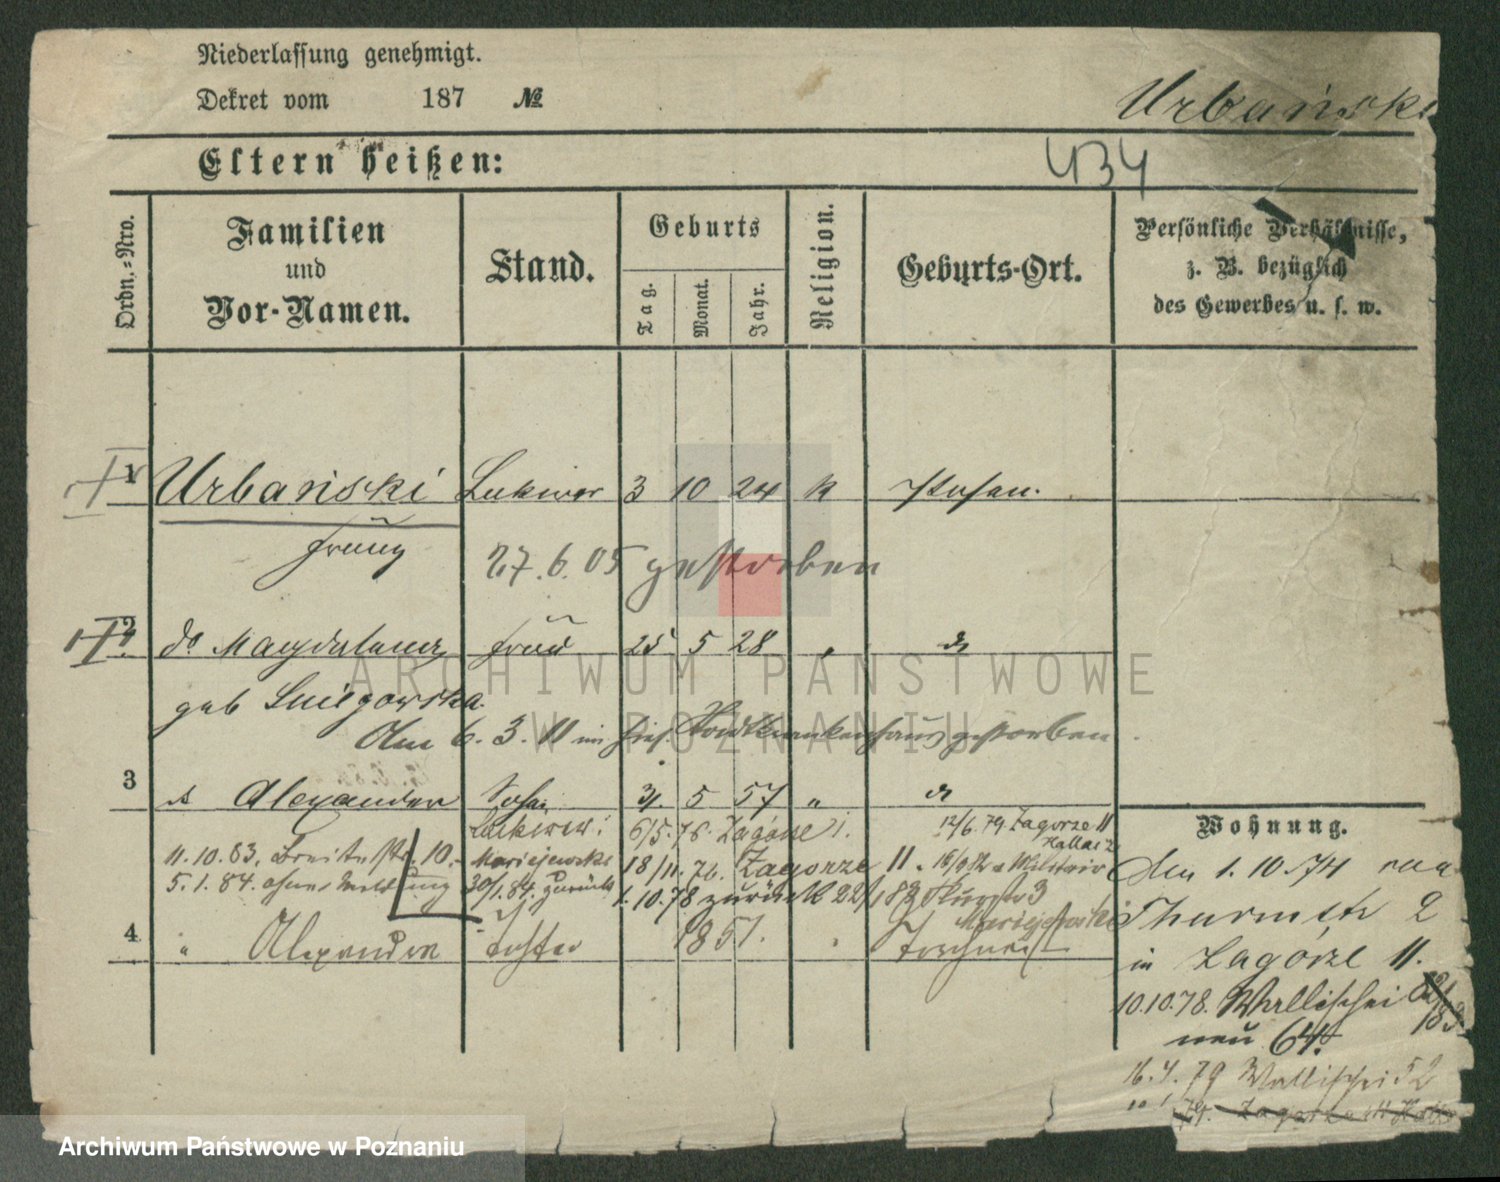 Niederlassung genehmigt.
Dekret vom 187 №
Urbański
Eltern heißen:
434
Ordn.-Nro.
Familien
und
Vor-Namen.
Stand.
Geburts
Tag.
Monat.
Jahr.
Religion.
Geburts-Ort.
Persönliche Verhältnisse,
z. B. bezüglich
des Gewerbes u. s. w.
1 Urbański 3 10 24 k Posen.
Franz
27.6.05 gestorben
2 do Magdalena Frau 25 5 28 "
geb Sniegowska.
Am 6. 3. 11 im hies. Stadtkrankenhaus gestorben
3 Alexander Sohn 31. 5 57 "
6/5.76. Zagórze 1. 12/6.79. Zagorze 11
11.10.83. Breitestr. 10. Maciejewski 18/11.76. Zagorze 11
5.1.84. ohne Meldung 30/1.84. zurück 1.10.78 zurück
Maciejewski
4 " Alexandra Tochter 1851. "
Wohnung.
Am 1.10.74
Thurmstr 2
in Zagórze 11.
10.10.78. Wallischei
neu 64.
16.4.79 Wallischei 52
79. Zagorze 11
ARCHIWUM PAŃSTWOWE
W POZNANIU
Archiwum Państwowe w Poznaniu